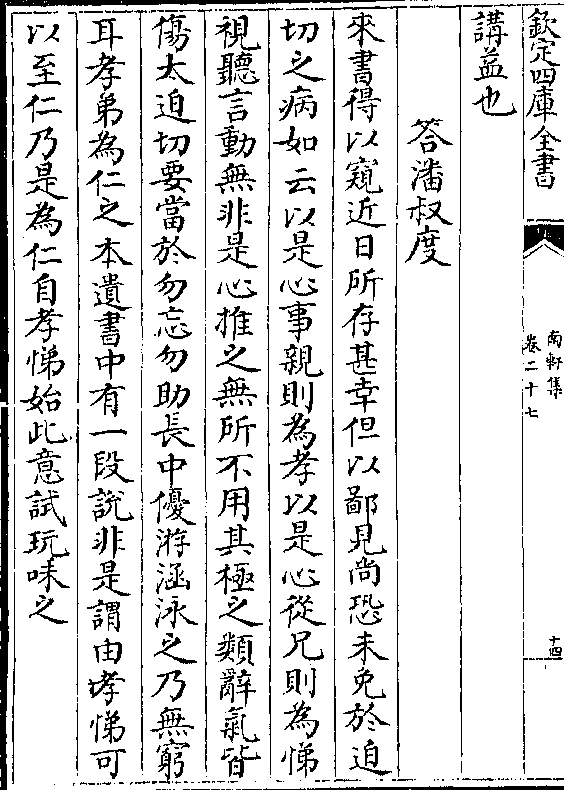 欽定四庫全書
南軒集
卷二十七
十四
講益也
答潘叔度
來書得以窺近日所存甚幸但以鄙見尚恐未免於迫
切之病如云以是心事親則為孝以是心從兄則為悌
視聽言動無非是心推之無所不用其極之類辭氣皆
傷太迫切要當於勿忘勿助長中優游涵泳之乃無窮
耳孝弟為仁之本遺書中有一段說非是謂由孝悌可
以至仁乃是為仁自孝悌始此意試玩味之